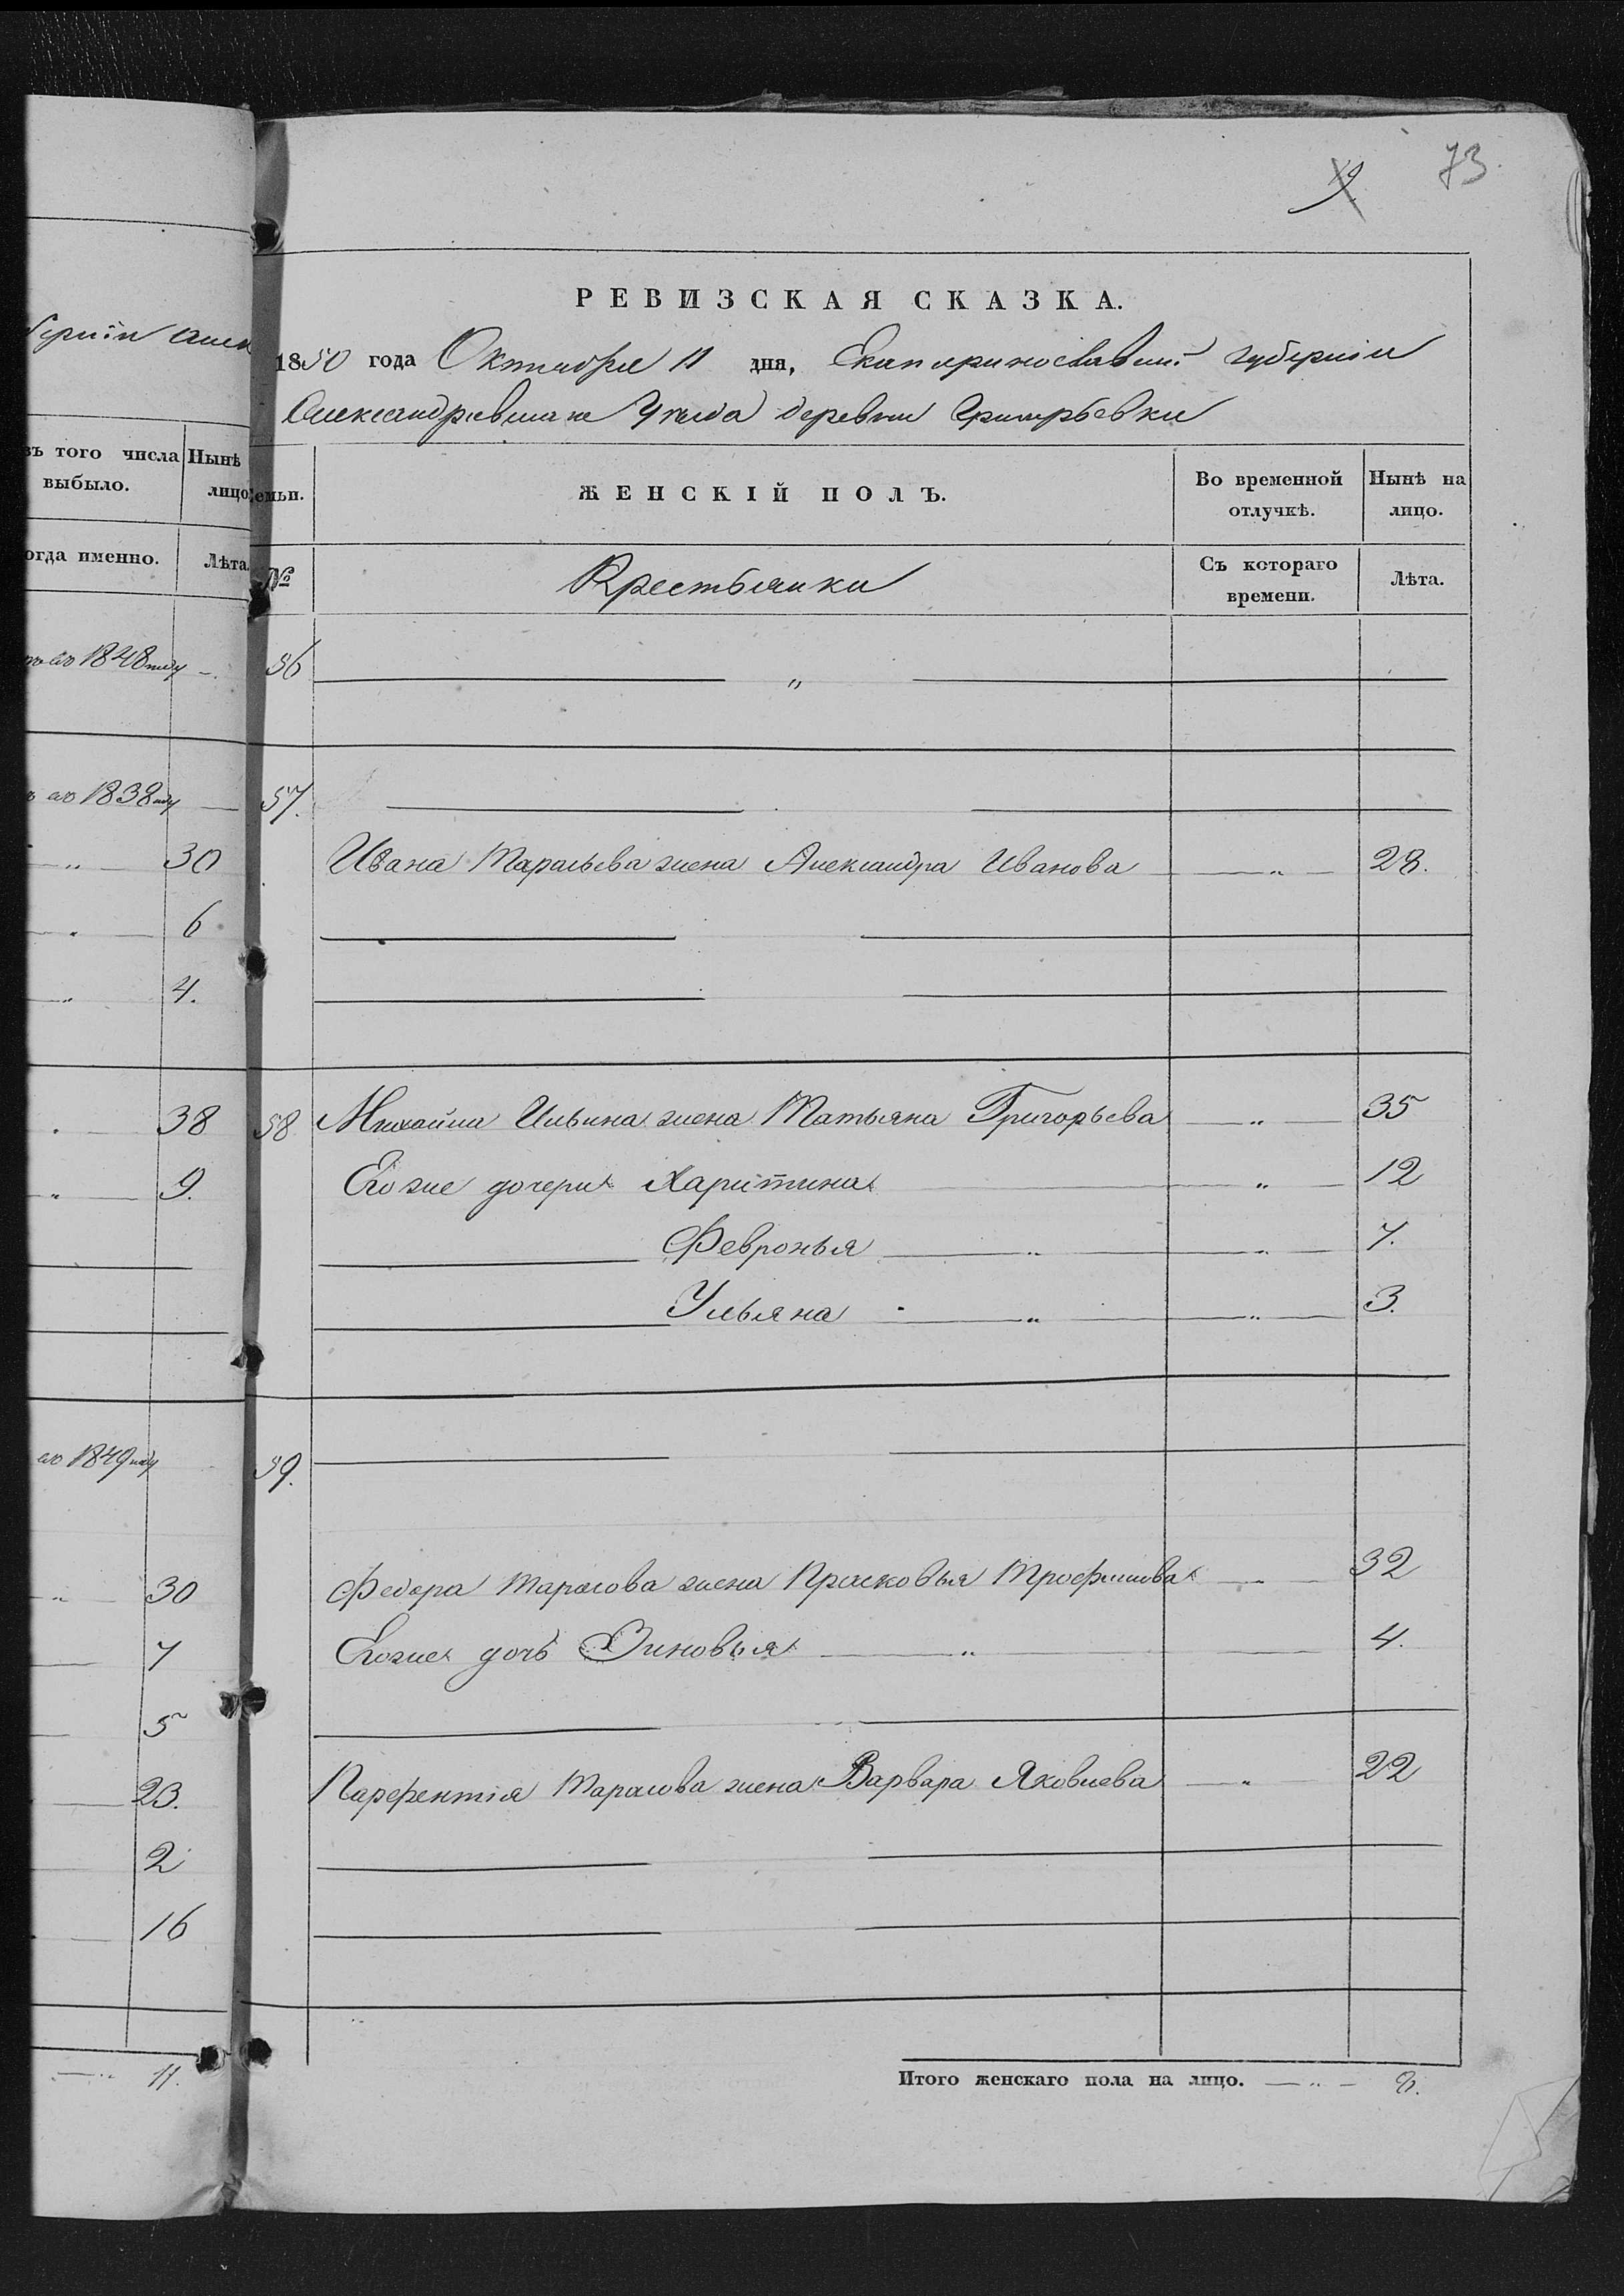 73.
РЕВИЗСКАЯ СКАЗКА.
1850 года Октября 11 дня, Екатеринославской губернии
Александровскаго Уезда деревни Григорьевки
семьи.
ЖЕНСКІЙ ПОЛЪ.
Во временной отлучкѣ.
Нынѣ на лицо.
№
Крестьянки
Съ котораго времени.
Лѣта.
56 — " —
57.
Ивана Тарасьева жена Александра Иванова — " — 28.
58 Михайла Ильина жена Татьяна Григорьева — " — 35
Его же дочери Харитина — " — 12
Февронья — " — " — 7.
Ульяна — " — " — 3.
59.
Федора Тарасова жена Прасковья Трофимова — 32
Его же дочь Зиновья — " — 4.
Парфентія Тарасова жена Варвара Яковлева — " — 22
Итого женскаго пола на лицо. — " — 8.
зъ того числа выбыло.
Нынѣ
лицо
огда именно.
Лѣта.
1848
1838
" — 30
" — 6
" — 4.
38
" — 9.
1849
" — 30
7
5
23.
2
16
11.